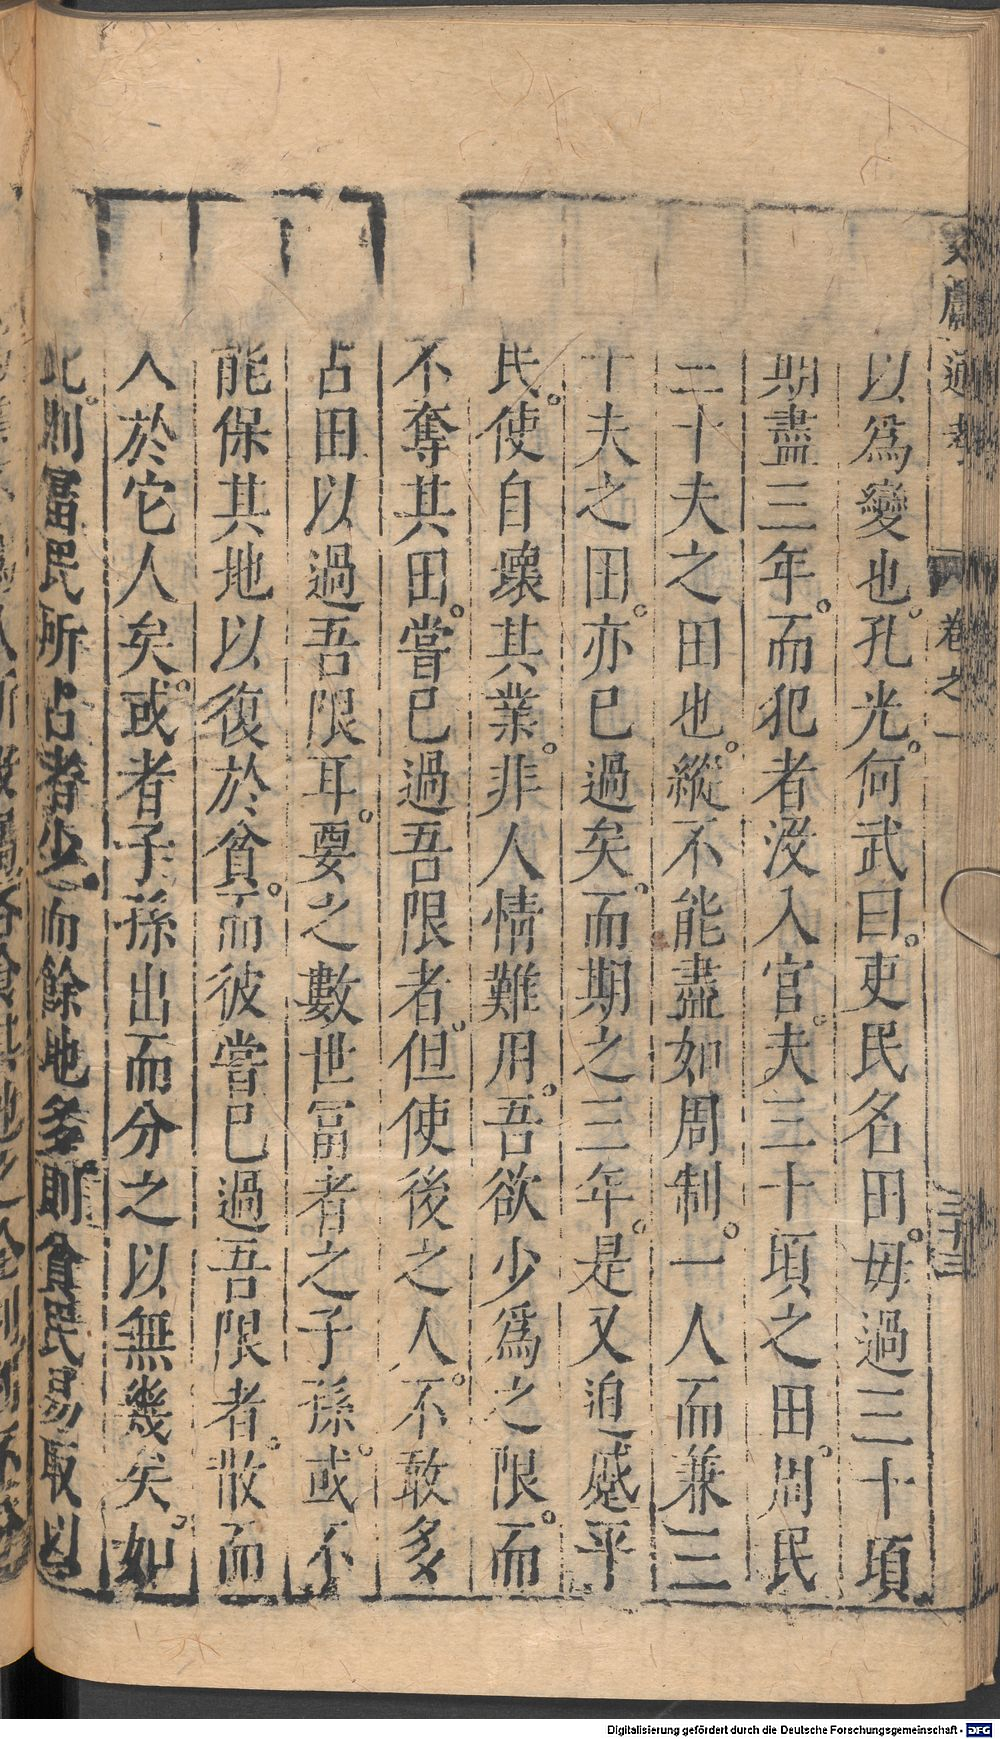 文獻通考 卷之一 三十三
以爲變也。孔光。何武曰。吏民名田。毋過三十頃
期盡三年。而犯者沒入官。夫三十頃之田。周民
三十夫之田也。縱不能盡如周制。一人而兼三
十夫之田。亦已過矣。而期之三年。是又迫蹙平
民。使自壞其業。非人情難用。吾欲少爲之限。而
不奪其田。嘗已過吾限者。但使後之人。不敢多
占田以過吾限耳。要之數世富者之子孫。或不
能保其地以復於貧。而彼嘗已過吾限者。散而
入於它人矣。或者子孫出而分之以無幾矣。如
此。則富民所占者少。而餘地多。則貧民易取以
Digitalisierung gefördert durch die Deutsche Forschungsgemeinschaft - DFG